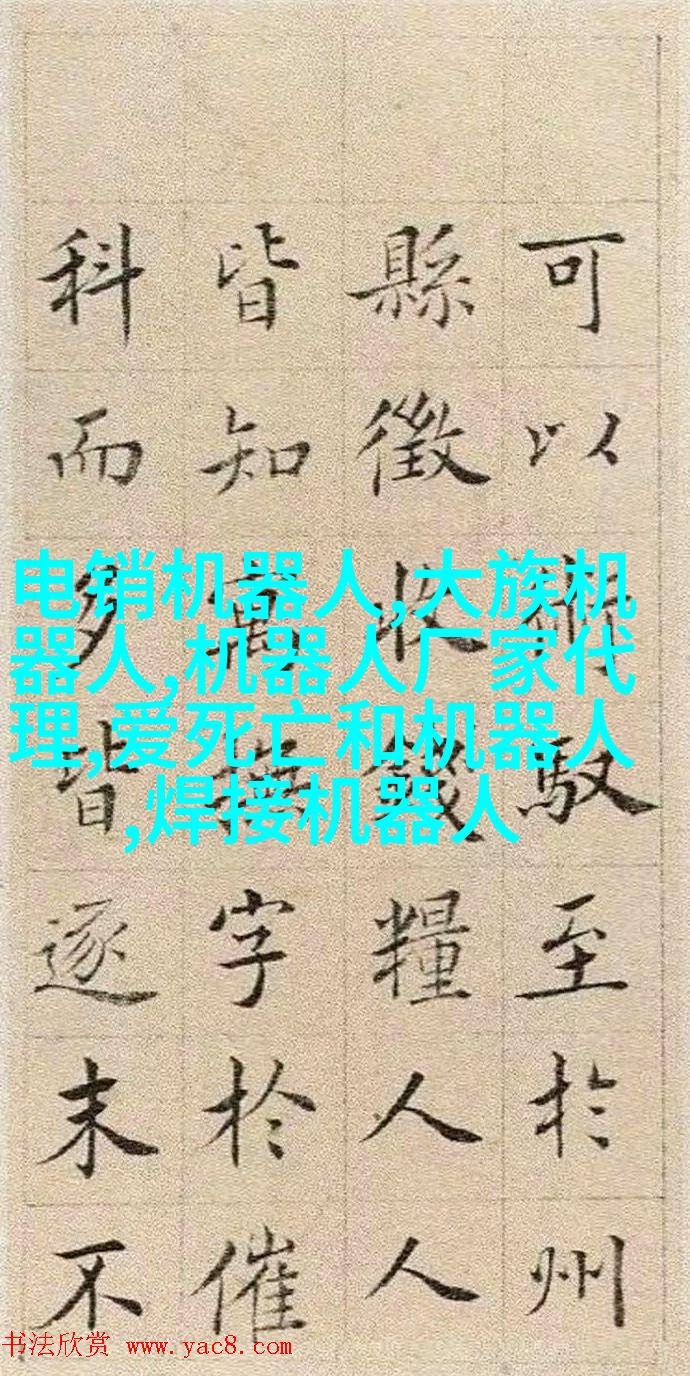 可以術馭至於州
縣徵收錢糧人人
皆知寓撫字於催
科而多皆逐末不
电销机器人,大族机
器人,机器人厂家代
理,爱死亡和机器人
,焊接机器人
书法欣赏 www.yac8.com